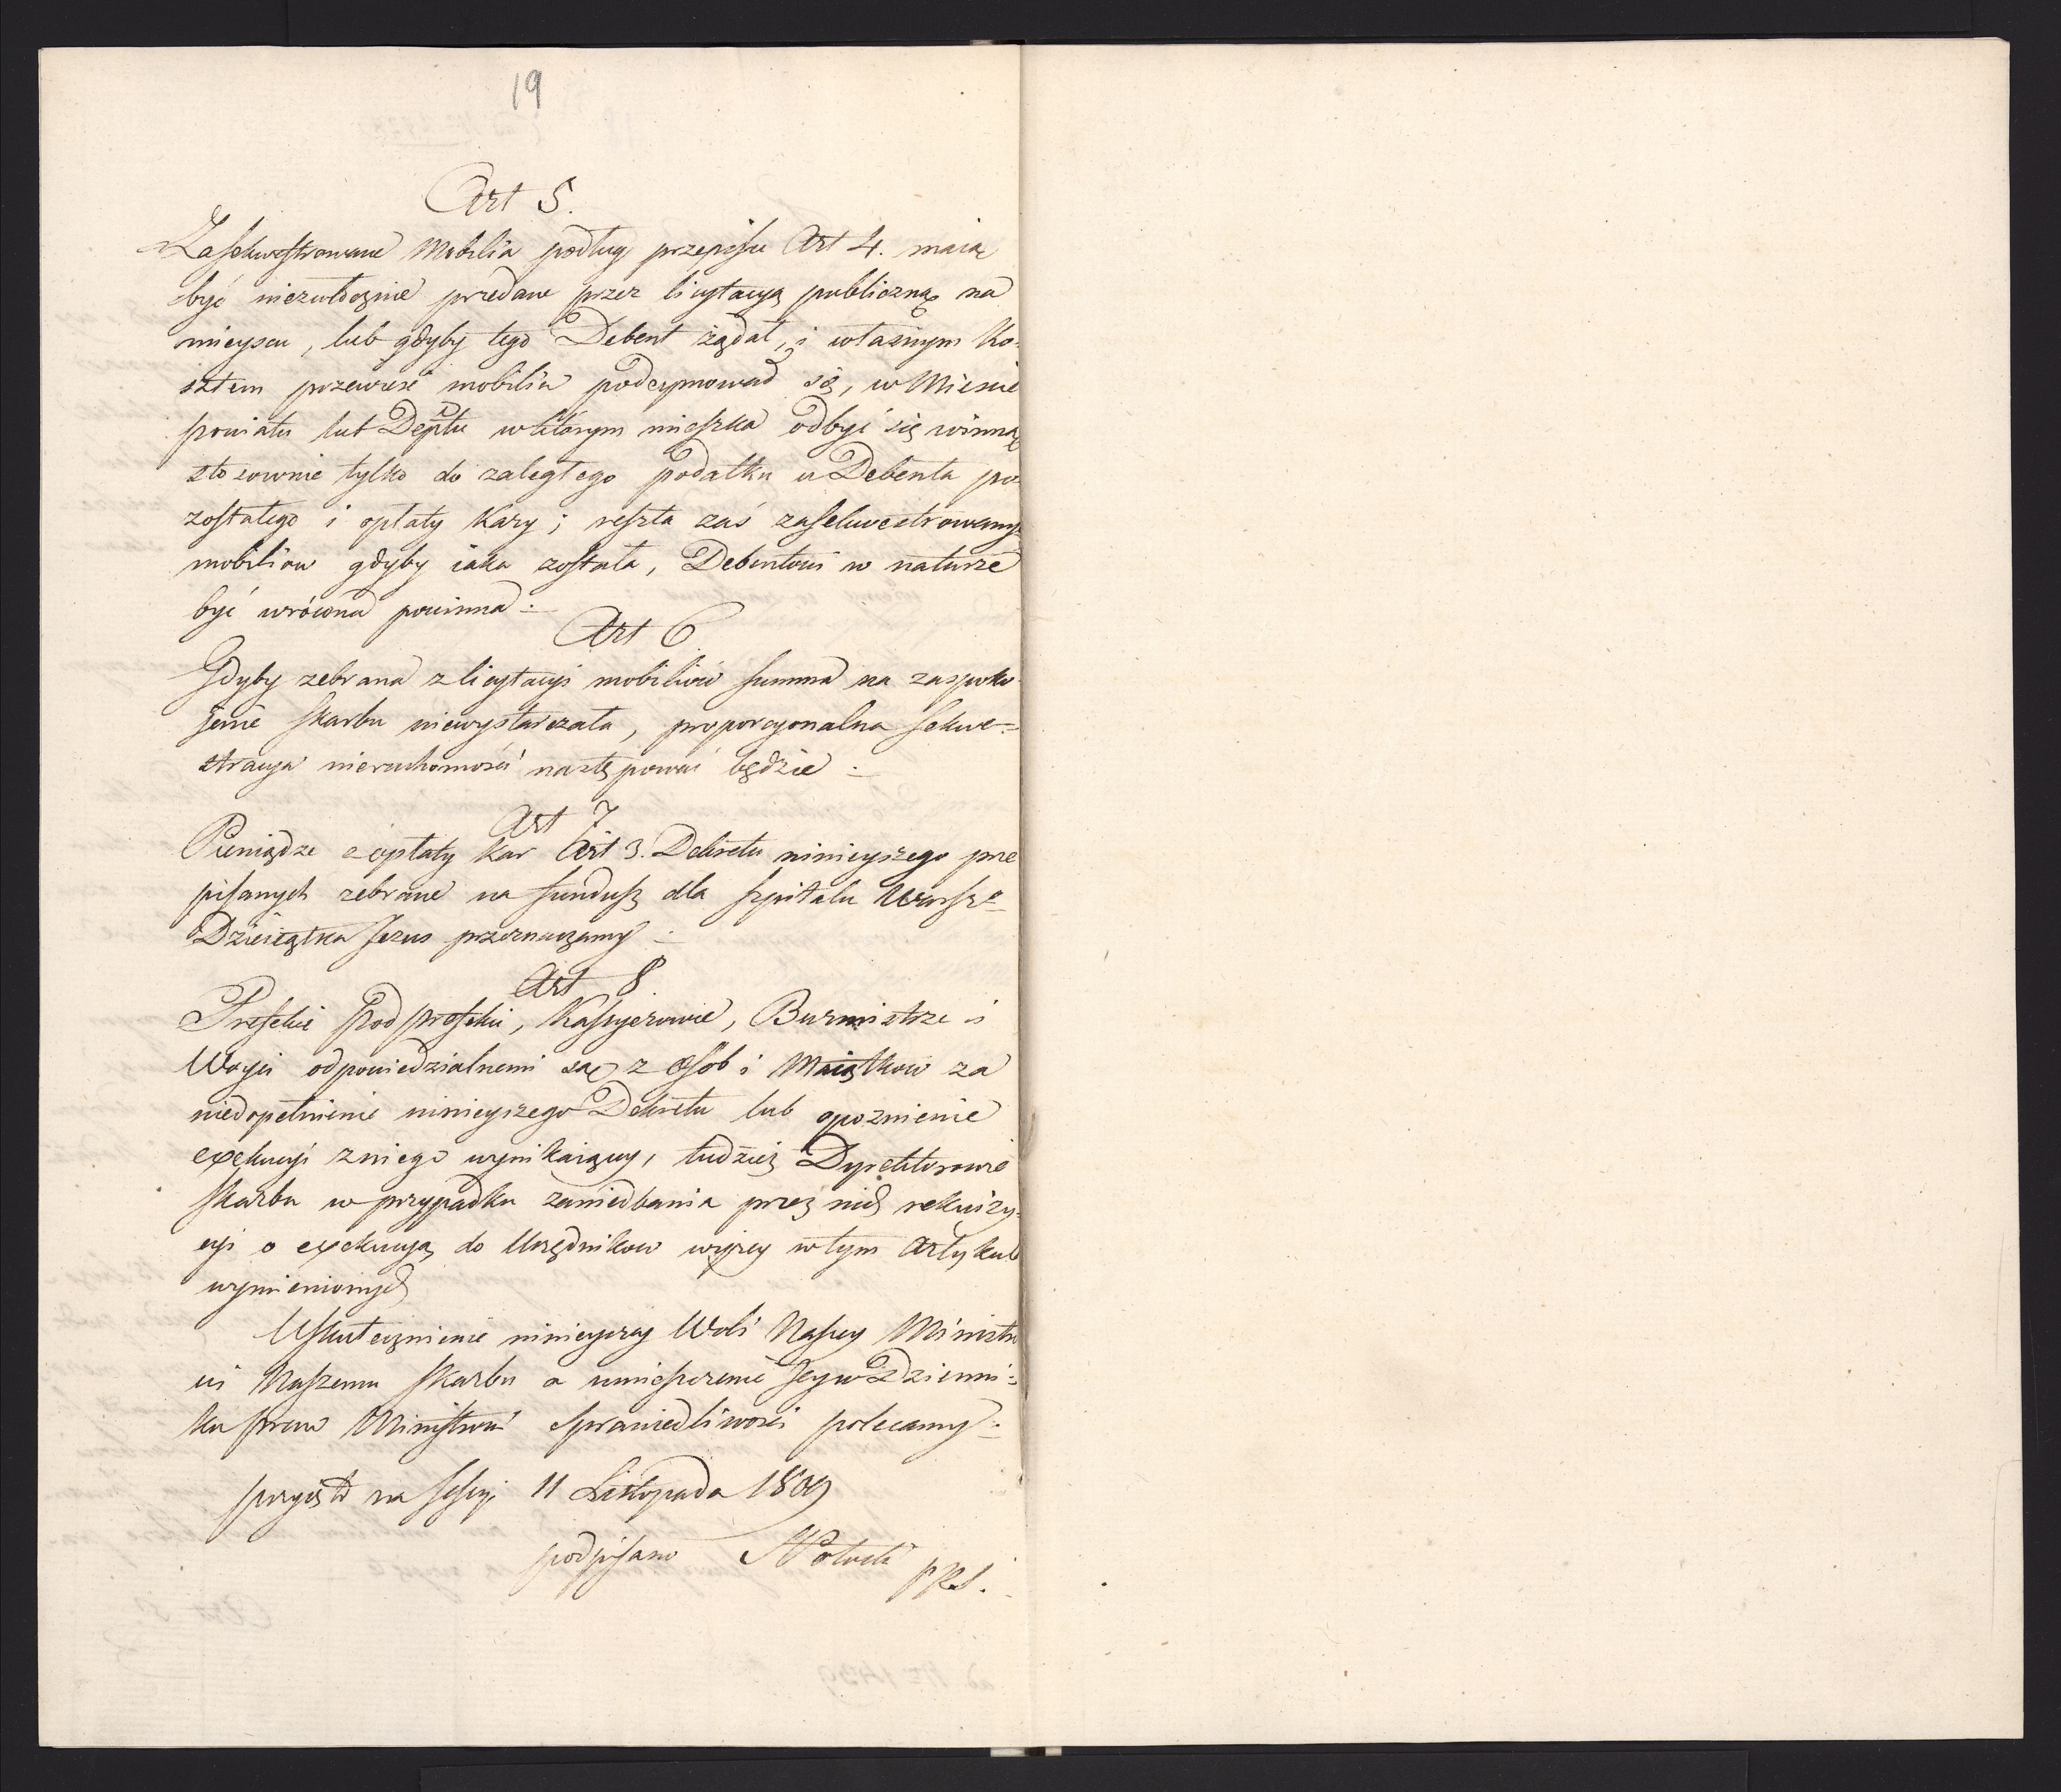 19
Art 5.
Zasekwestrowane Mobilia podług przepisu Art 4. maią
być niezwłocznie przedane przez licytacyą publiczną na
mieyscu, lub gdyby tego Debent żądał, i własnym ko-
sztem przewieść mobilia podeymował się, w Mieście
powiatu lub Deptu w którym mieszka odbyć się winna
stosownie tylko do zaległego podatku u Debenta po-
zostałego i opłaty kary; reszta zaś zasekwestrowanych
mobiliow gdyby iaka została, Debentowi w naturze
być wrócona powinna :
Art 6
Gdyby zebrana z licytacyi mobiliów summa na zaspoko-
jenie skarbu niewystarczała, proporcyonalna sekwe-
stracya nieruchomości następować będzie :
Art 7
Pieniądze z opłaty kar Art 3. Dekretu ninieyszego prze
pisanych zebrane na fundusz dla szpitalu Warsz.
Dzieciątka Jezus przeznaczamy :
Art 8
Prefekci Podprefekci, Kassyerowie, Burmistrze i
Woyci odpowiedzialnemi są z osób i Maiątkow za
niedopełnienie ninieyszego Dekretu lub opoznienie
exekucyi z niego wynikaiącey, tudzież Dyrektorowie
skarbu w przypadku zaniedbania przez nich rekwizy-
cyi o exekucyą do Urzędnikow wyżey w tym Artykule
wymienionych
Uskutecznienie ninieyszey Woli Naszey Ministro
wi Naszemu skarbu a umieszczenie Jey w Dzienni-
ku praw Ministrowi sprawiedliwości polecamy :
przyięto na sessyi 11 Listopada 1809
podpisano S Potocki
PRS.